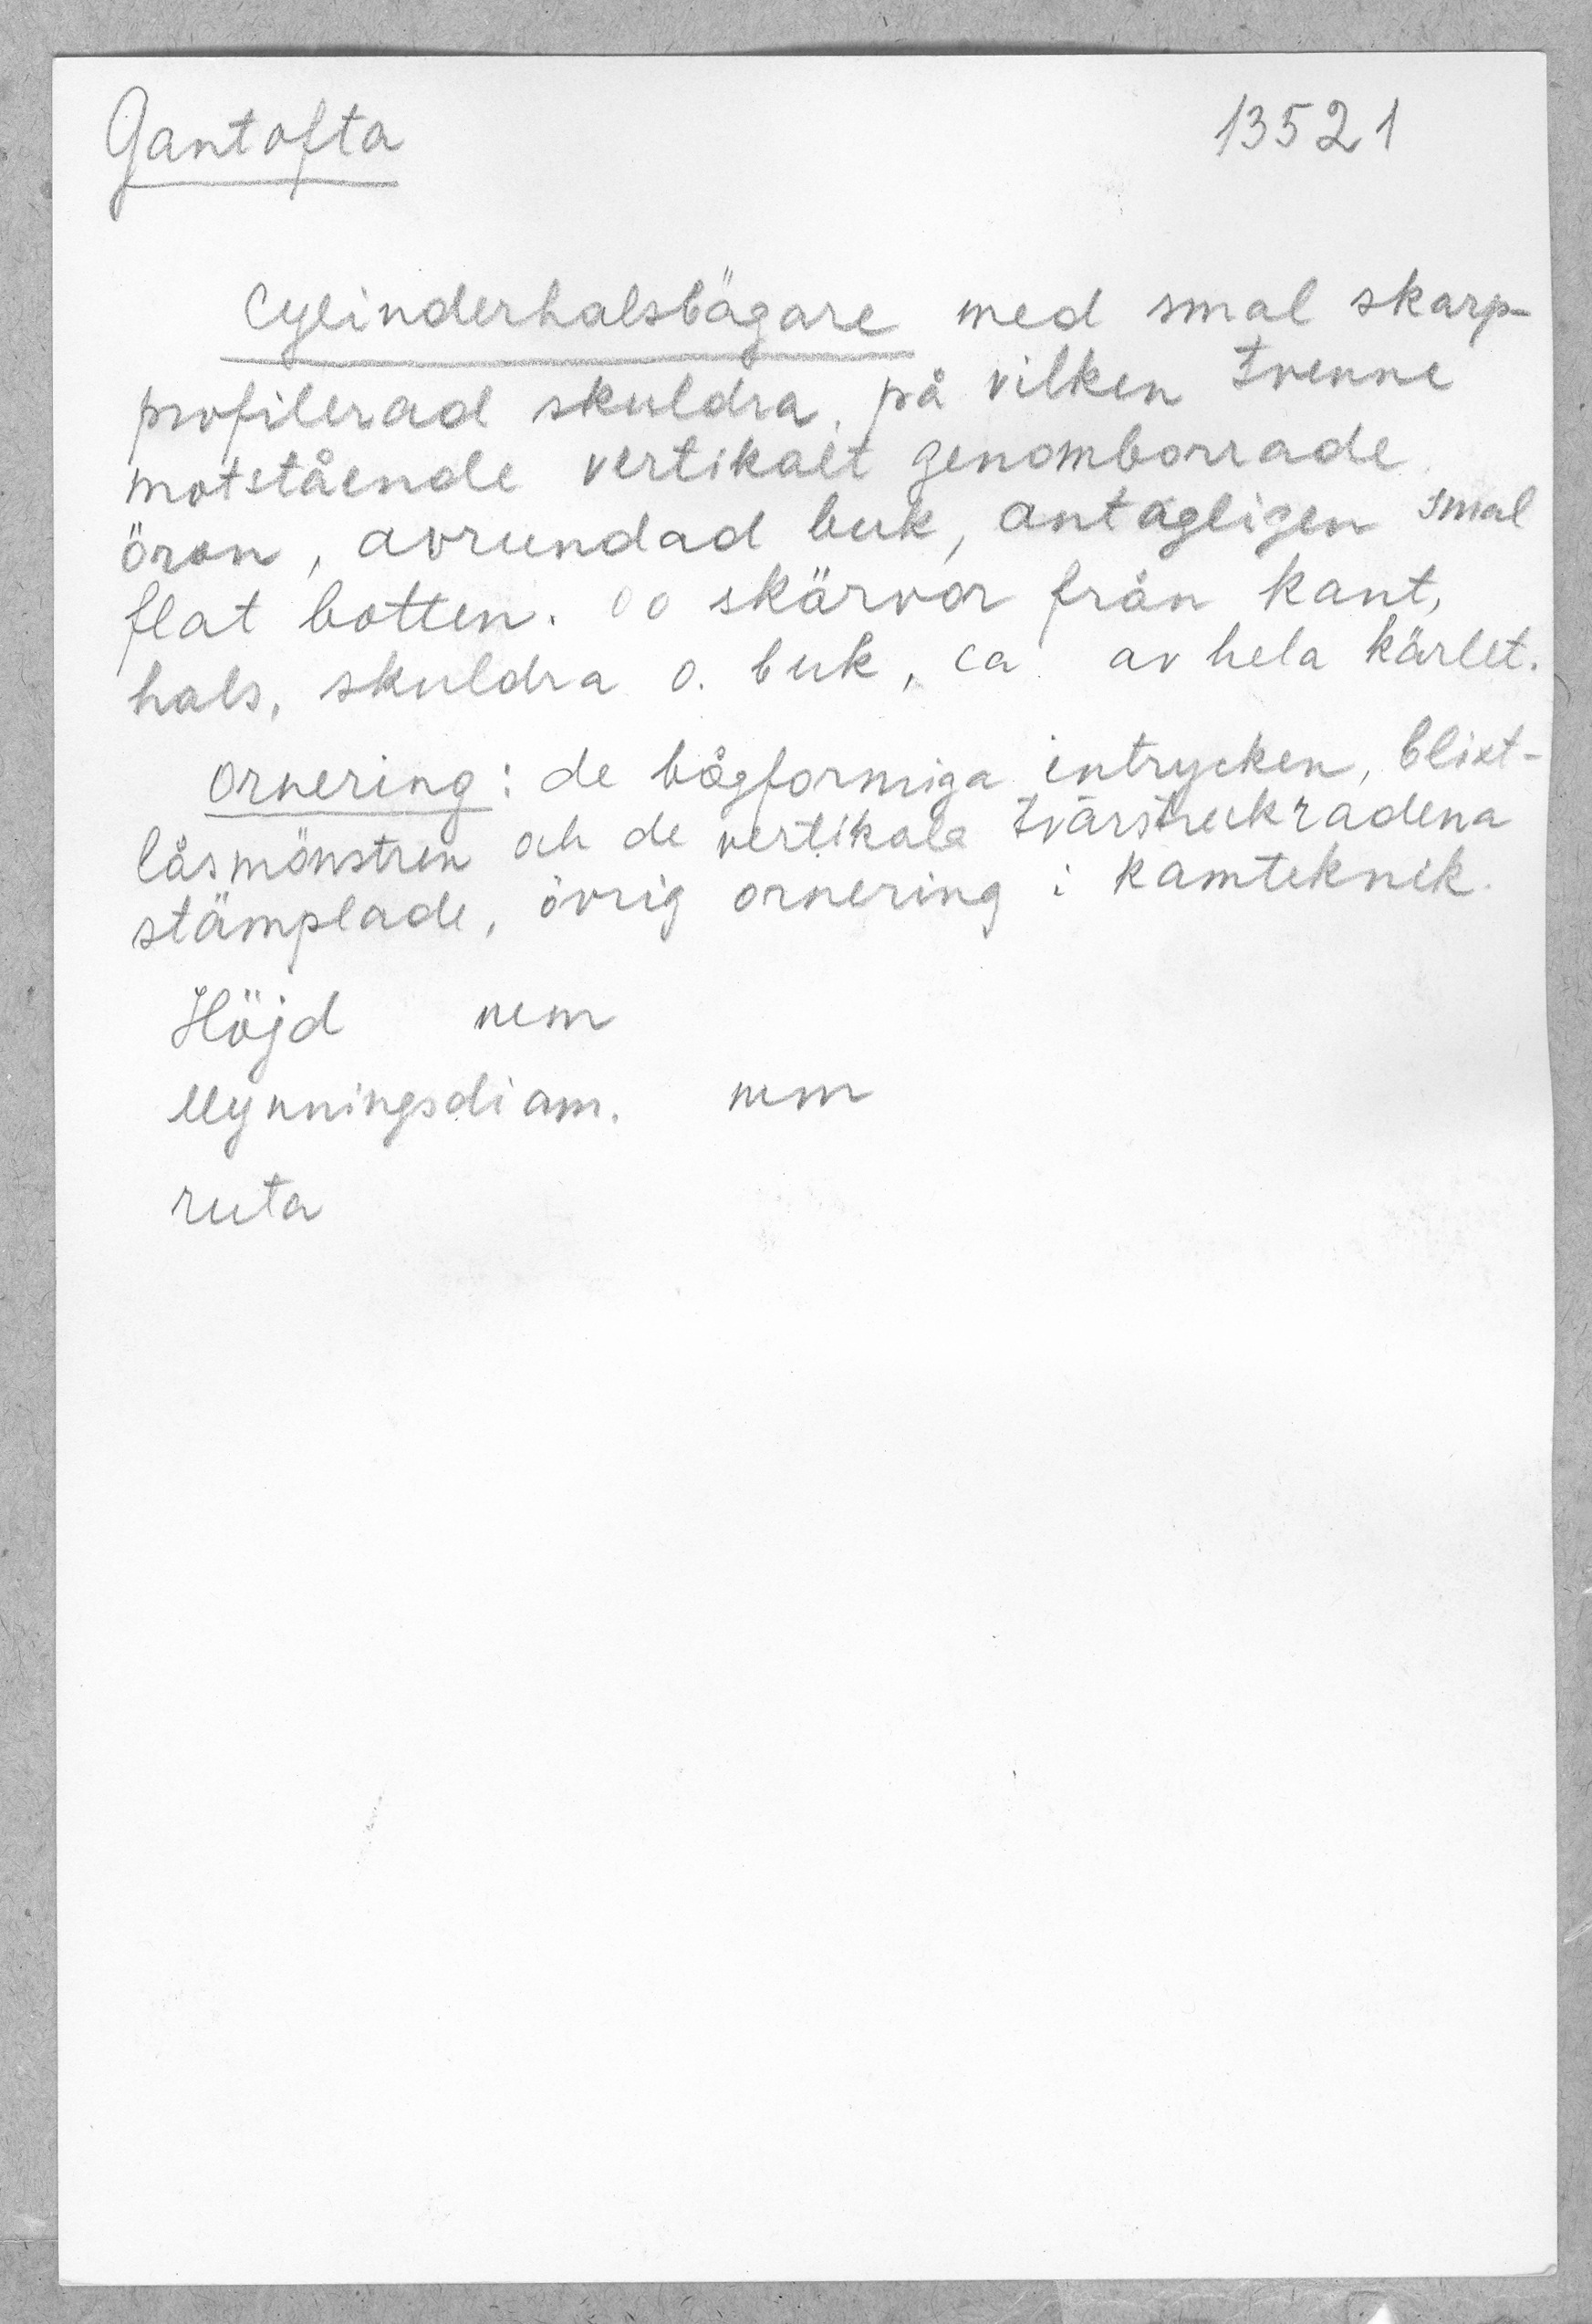 Gantofta
13521
Cylinderhalsbägare med smal skarp-
profilerad skuldra, på vilken tvenne
motstående vertikalt genomborrade
öron, avrundad buk, antagligen smal
flat botten. 00 skärvor från kant,
hals, skuldra o. buk, ca av hela kärlet.
Ornering: de bågformiga intrycken, blixt-
låsmönstren och de vertikala tvärstreckradena
stämplade, övrig ornering i kamteknik.
Höjd mm
Mynningsdiam. mm
ruta